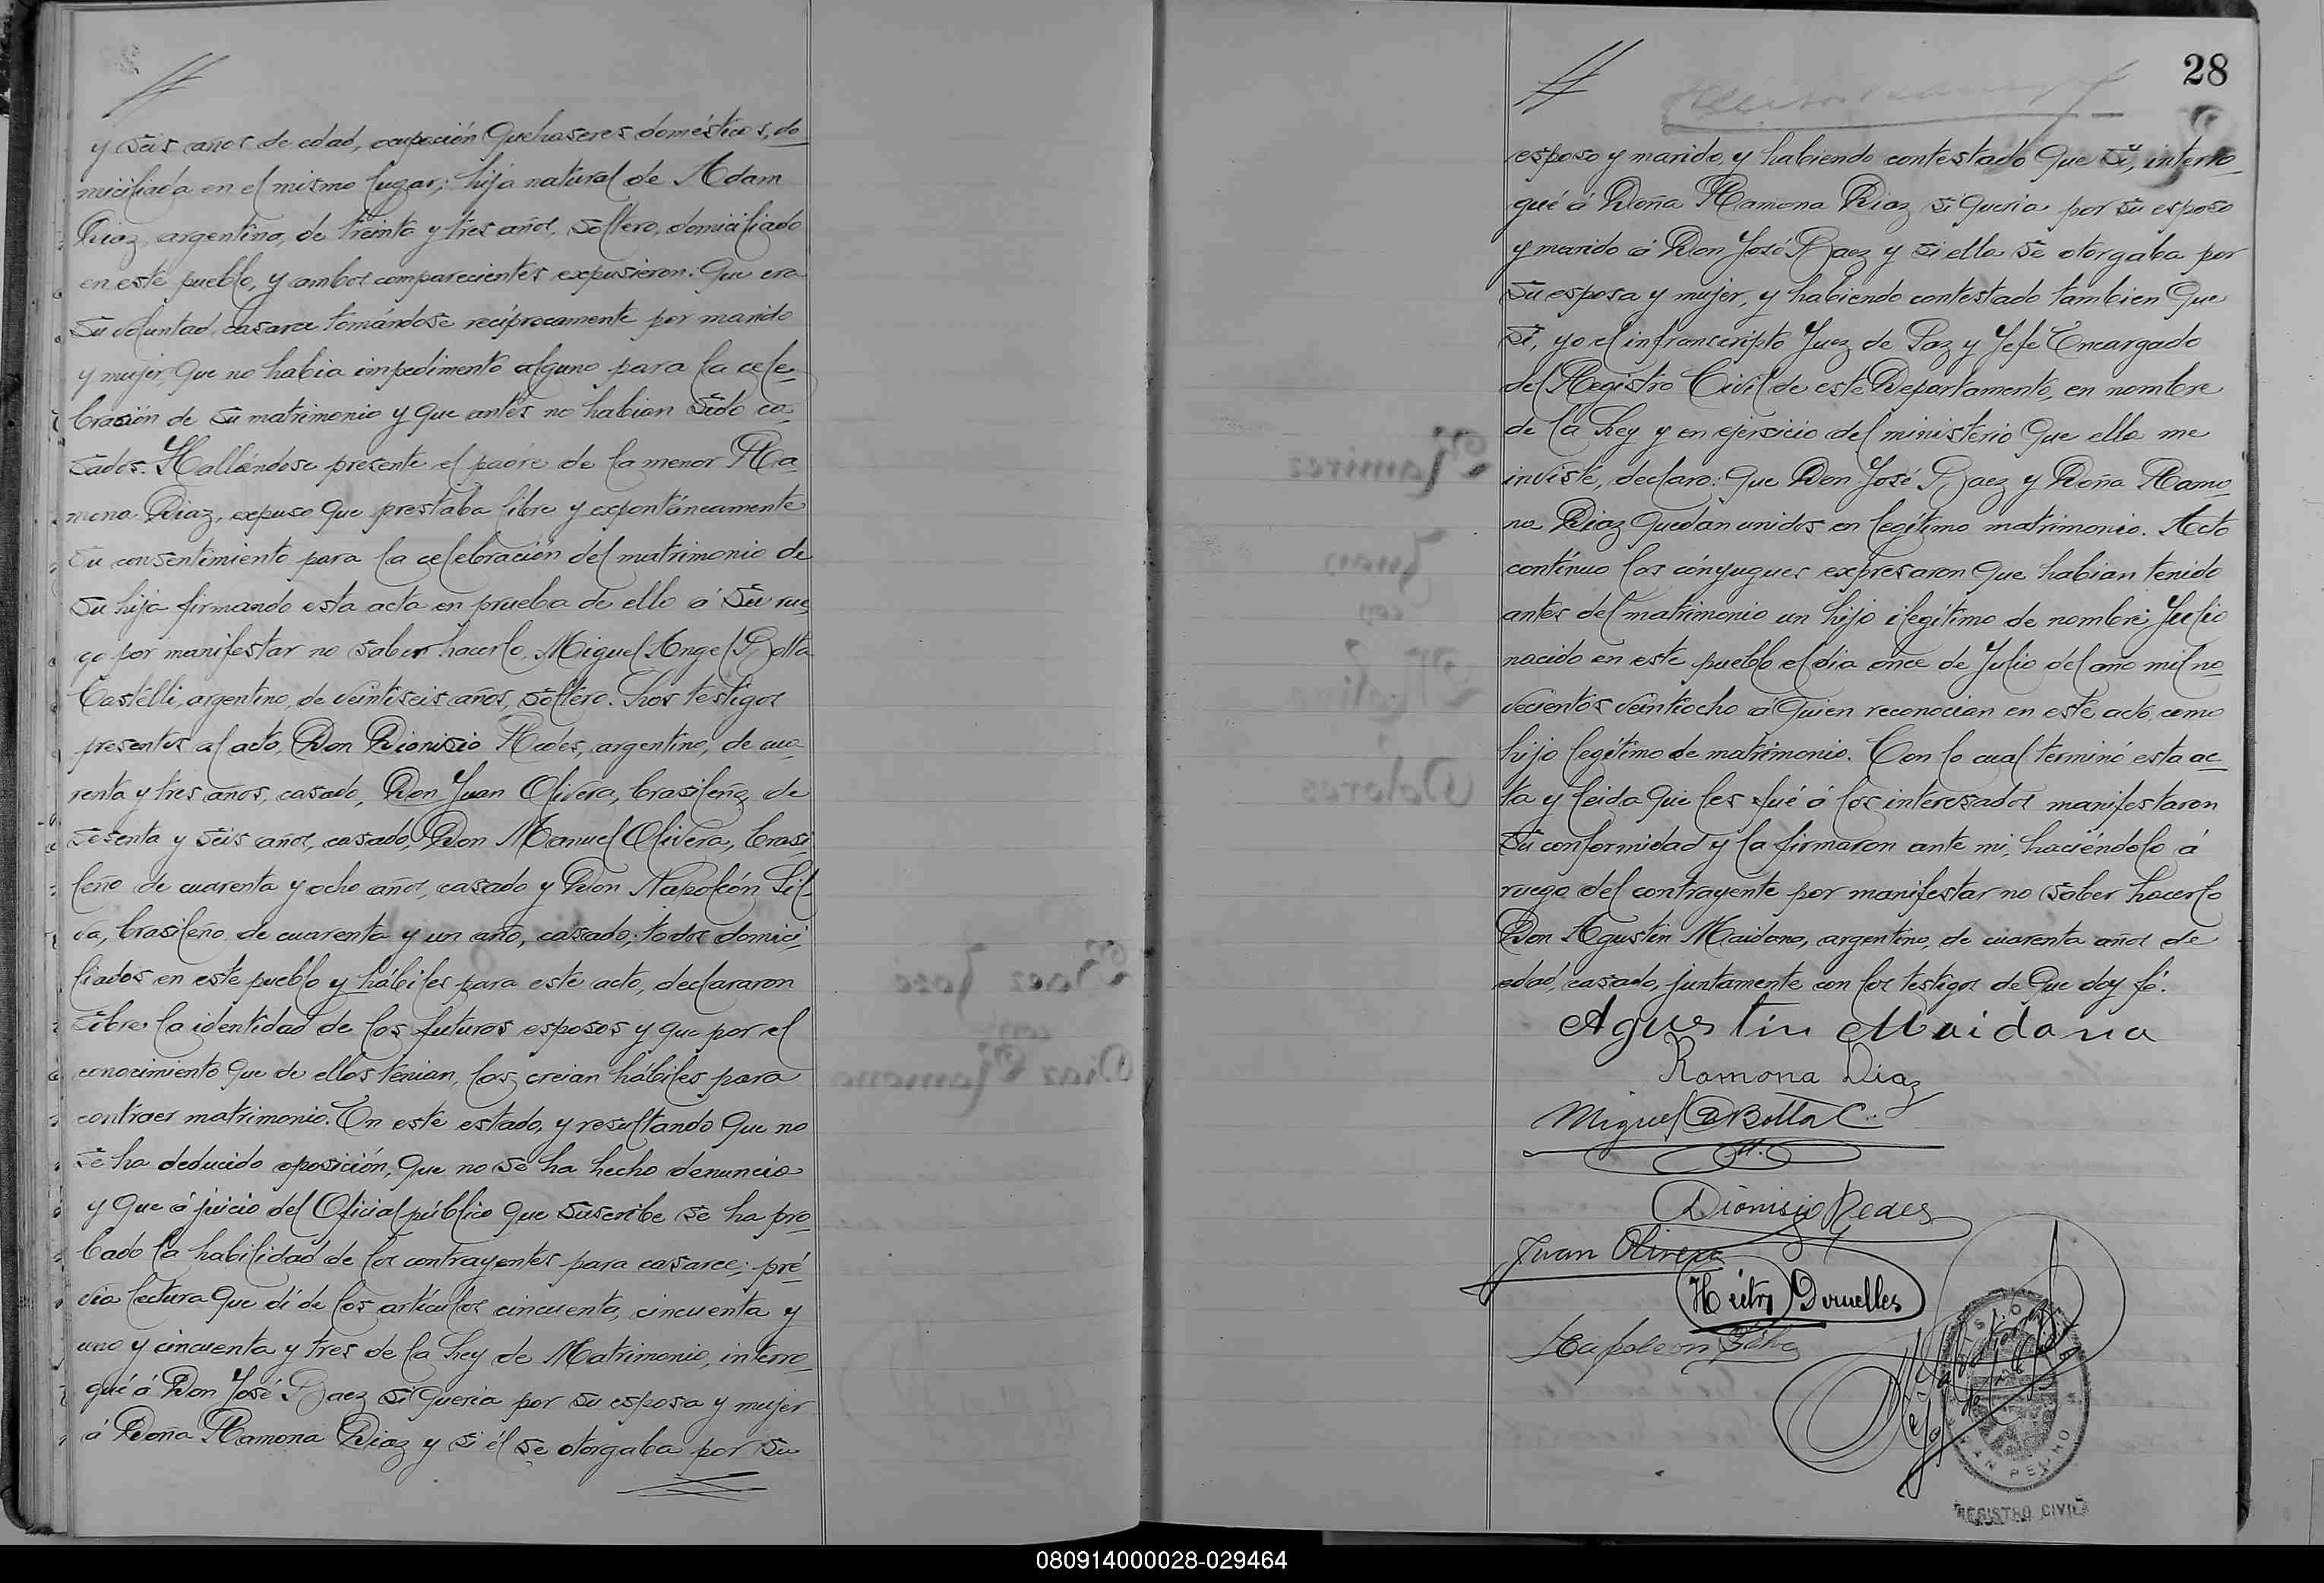 y seis años de edad, ocupación quehaseres domésticos, do
miciliada en el mismo lugar; hija natural de Adam
Diaz, argentino, de treinta y tres años, soltero, domiciliado
en este pueblo, y ambos comparecientes expusieron: Que era
su voluntad casarce tomándose recíprocamente por marido
y mujer, Que no habia impedimento alguno para la cele
brasión de su matrimonio y que antes no habian sido ca
sados. Hallándose presente el padre de la menor Ra
mona Diaz, expuso que prestaba libre y expontáneamente
su consentimiento para la celebración del matrimonio de
su hija firmando esta acta en prueba de ello á su rue
go por manifestar no saber hacerlo, Miguel Angel Botta
Castelli, argentino, de veintiseis años, soltero. Los testigos
presentes al acto, Don Dionisio Redes, argentino, de cua
renta y tres años, casado, Don Juan Olivera, brasileño, de
sesenta y seis años, casado, Don Manuel Olivera, brasi
leño de cuarenta y ocho años, casado y Don Napoleón Sil
va, brasileño de cuarenta y un año, casado; todos domici
liados en este pueblo y hábiles para este acto, declararon
sobre la identidad de los futuros esposos y que por el
conocimiento que de ellos tenian, los creian hábiles para
contraer matrimonio. En este estado, y resultando que no
se ha deducido oposición, que no se ha hecho denuncia
y que á juicio del Oficial público que suscribe se ha pro
bado la habilidad de los contrayentes para casarce; pré
via lectura que dí de los artículos cincuenta, cincuenta y
uno y cincuenta y tres de la Ley de Matrimonio, interro
gué á Don José Baez si queria por su esposa y mujer
á Doña Ramona Diaz y si él se otorgaba por su
28
esposo y marido y habiendo contestado que si, interro
gué á Doña Ramona Diaz si queria por su esposo
y marido á Don José Baez y si ella se otorgaba por
su esposa y mujer, y habiendo contestado tambien que
si, yo el infranscripto Juez de Paz y Jefe Encargado
del Registro Civil de este Departamento, en nombre
de la Ley y en ejersicio del ministerio que ella me
inviste, declaro: Que Don José Baez y Doña Ramo
na Diaz quedan unidos en legítimo matrimonio. Acto
contínuo los cónyugues expresaron que habian tenido
antes del matrimonio un hijo ilegítimo de nombre: Julio
nacido en este pueblo el dia once de Julio del año mil no
vecientos veintiocho á quien reconocian en este acto como
hijo legítimo de matrimonio. Con lo cual terminó esta ac
ta y leida que les fué á los interesados manifestaron
su conformidad y la firmaron ante mi, haciéndolo á
ruego del contrayente por manifestar no saber hacerlo
Don Agustin Maidana, argentino, de cuarenta años de
edad, casado, juntamente con los testigos de que doy fé.
Agustin Maidana
Ramona Diaz
Miguel A Botta C.
Dionisio Redes
Juan Olivera
Héctor Deruelles
Napoleon Silva
SAN PEDRO
REGISTRO CIVIL
080914000028-029464